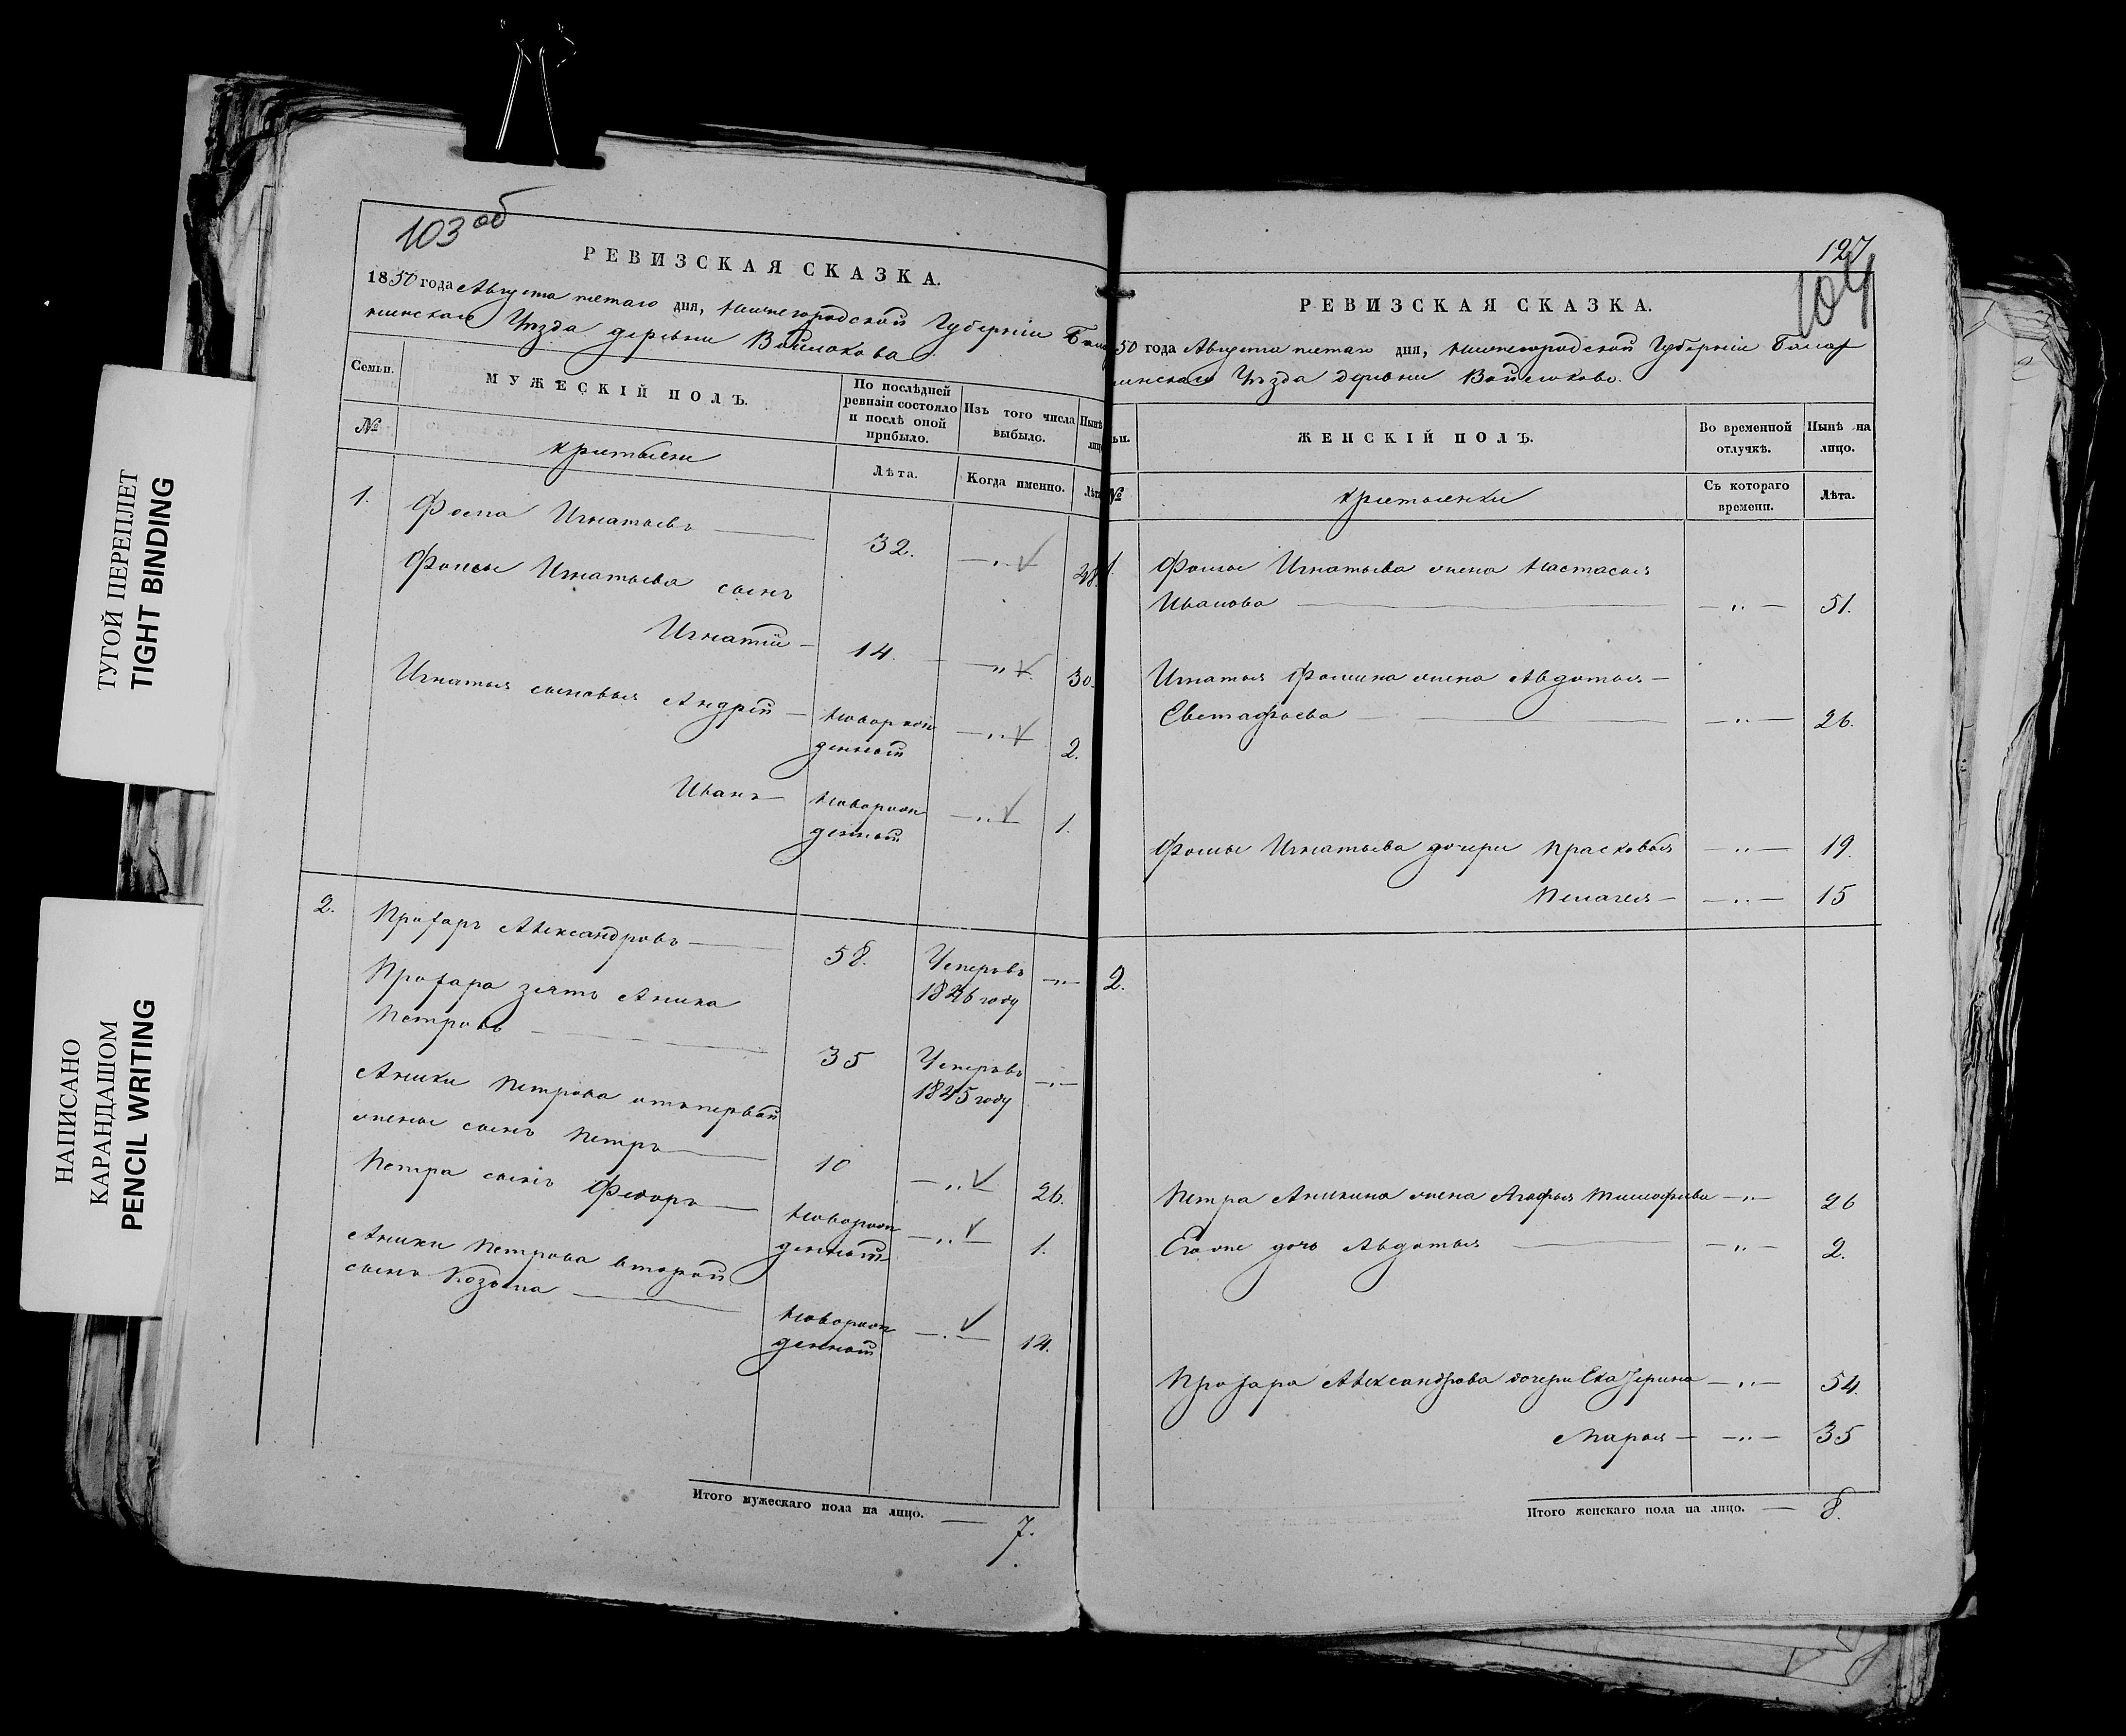 ТУГОЙ ПЕРЕПЛЕТ
TIGHT BINDING
НАПИСАНО
КАРАНДАШОМ
PENCIL WRITING
103 об
РЕВИЗСКАЯ СКАЗКА.
1850 года Августа пятаго дня, Нижегородской Губерніи Бала
нинскаго Уѣзда деревни Войлокова
Семьи.
МУЖЕСКІЙ ПОЛЪ.
По послѣдней ревизіи состояло и послѣ оной прибыло.
Изъ того числа выбыло.
Нынѣ лицо
№
Крестьяне
Лѣта.
Когда именно.
Лѣта
1.
Фома Игнатьевъ — 32. —„— 48.
Фомы Игнатьева сынъ
Игнатій — 14. —„— 30.
Игнатья сыновья Андрей — Новорож
денный —„— 2.
Иванъ — Новорож
денный —„— 1.
2.
Прохоръ Александровъ — 58. Умеръ въ
1846 году —„—
Прохора зять Аника
Петровъ — 35 Умеръ въ
1845 году —„—
Аники Петрова отъ первой
жены сынъ Петръ — 10 —„— 26.
Петра сынъ Федоръ — Новорож
денный —„— 1.
Аники Петрова второй
сынъ Козьма — Новорож
денный —„— 14.
Итого мужескаго пола на лицо. — 7.
127
104
РЕВИЗСКАЯ СКАЗКА.
50 года Августа пятаго дня, Нижегородской Губерніи Балах
нинскаго Уѣзда деревни Войлокова.
ьи.
ЖЕНСКІЙ ПОЛЪ.
Во временной отлучкѣ.
Нынѣ на лицо.
№
Крестьянки
Съ котораго времени.
Лѣта.
1.
Фомы Игнатьева жена Настасья
Иванова — —„— 51.
Игнатья Фомина жена Авдотья —
Евстафьева — —„— 26.
Фомы Игнатьева дочери Прасковья —„— 19.
Пелагея — —„— 15
2.
Петра Аникина жена Агафья Тимофѣева —„— 26
Ево же дочь Авдотья — —„— 2.
Прохора Александрова дочери Екатерина —„— 54.
Марья — —„— 35
Итого женскаго пола на лицо. — 8.